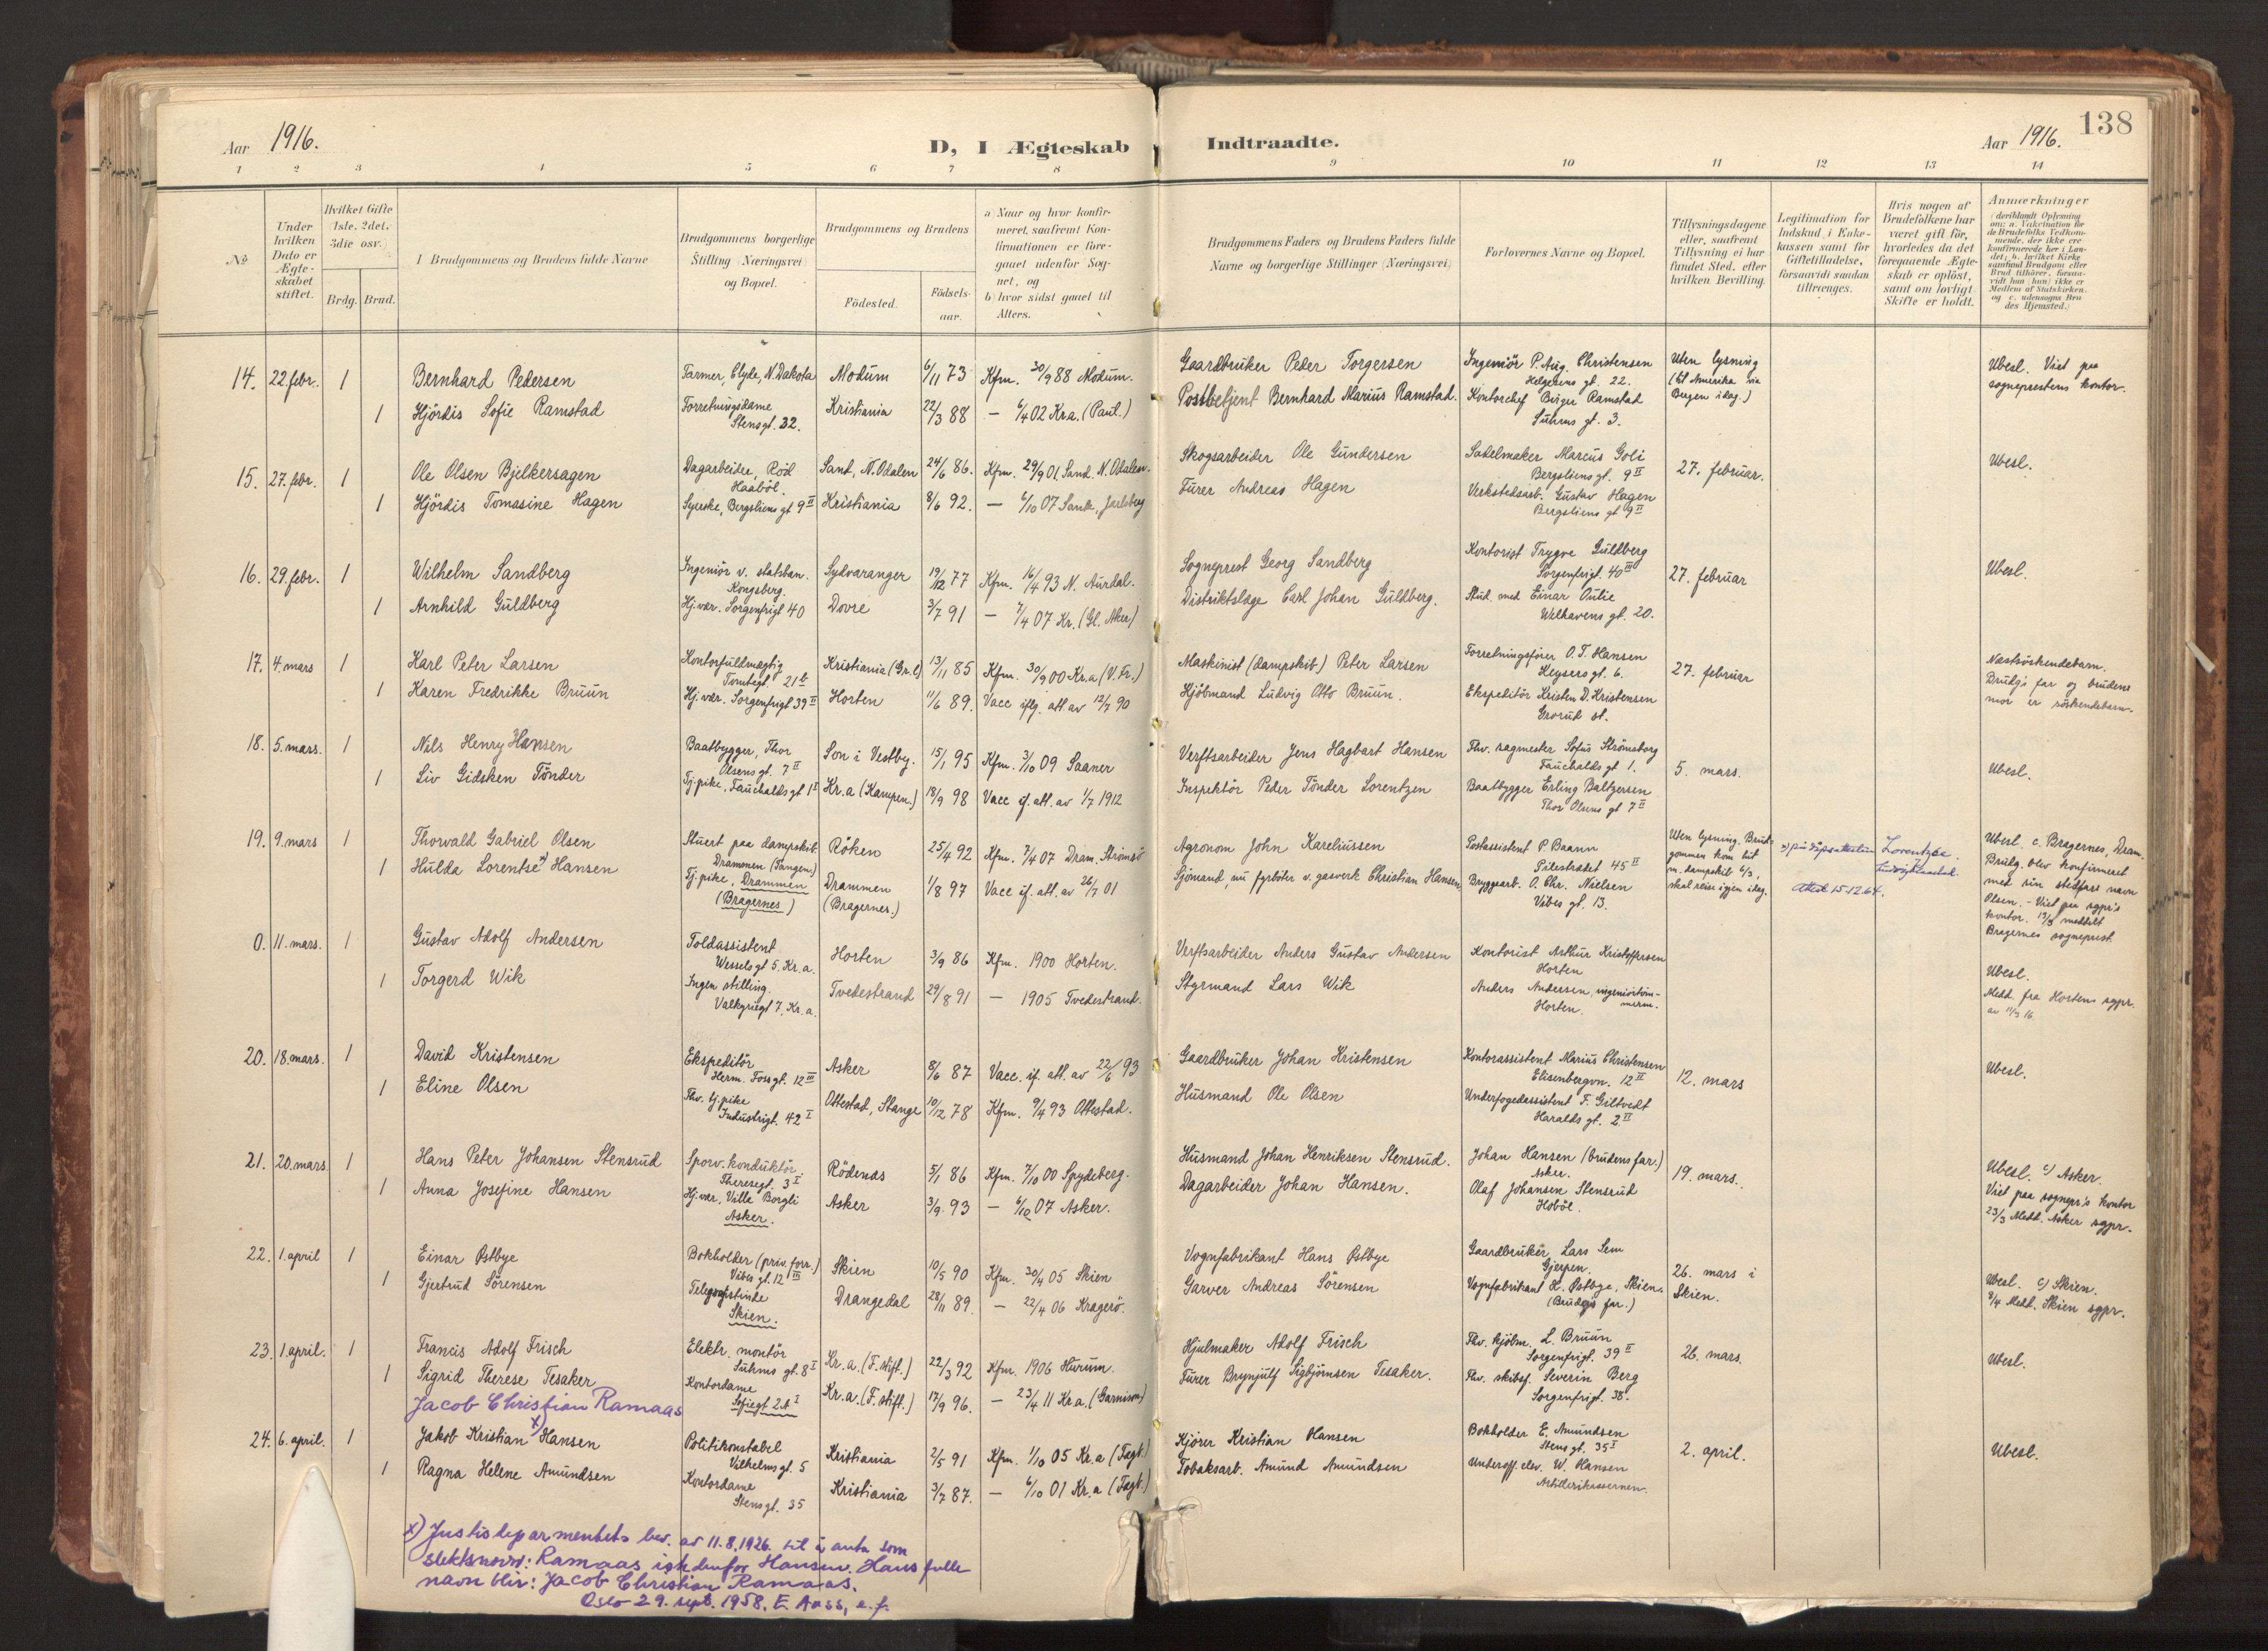 138
Aar 1916.
D, I Ægteskab Indtraadte.
Aar 1916.
1 2 3 4 5 6 7 8 9 10 11 12 13 14
No
Under hvilken Dato er Ægteskabet stiftet.
Hvilket Gifte (1ste. 2det. 3die osv.)
Brdg. Brud.
I Brudgommens og Brudens fulde Navne
Brudgommens borgerlige Stilling (Næringsvei) og Bopæl.
Brudgommens og Brudens
Födested.
Födselsaar.
a) Naar og hvor konfirmeret, saafremt Konfirmationen er foregaaet udenfor Sognet, og
b) hvor sidst gaaet til Alters.
Brudgommens Faders og Brudens Faders fulde Navne og borgerlige Stillinger (Næringsvei)
Forlovernes Navne og Bopæl.
Tillysningsdagene eller, saafremt Tillysning ei har fundet Sted, efter hvilken Bevilling.
Legitimation for Indskud i Enkekassen samt for Giftetilladelse, forsaavidt saadan tiltrænges.
Hvis nogen af Brudefolkene har været gift för, hvorledes da det foregaaende Ægteskab er oplöst, samt om lovligt Skifte er holdt.
Anmærkninger
(deriblandt Oplysning om: a. Vakcination for de Brudefolks Vedkommende, der ikke ere konfirmerede her i Landet; b. hvilket Kirkesamfund Brudgom eller Brud tilhörer, forsaavidt han (hun) ikke er Medlem af Statskirken, og c. udensogns Brudes Hjemsted.)
14. 22. febr. 1 Bernhard Pedersen Farmer, Clyde, N. Dakota Modum 6/11 73 Kfm. 30/9 88 Modum. Gaardbruker Peder Torgersen Ingeniör P. Aug. Christensen Helgesens gt. 22. Uten lysning (til Amerika via Bergen idag.) Ubesl. Viet paa sogneprestens kontor.
1 Hjördis Sofie Ramstad Forretningsdame Stensgt. 32. Kristiania 22/3 88 — 6/4 02 Kr.a. (Paul.) Postbetjent Bernhard Marius Ramstad. Kontorchef Birger Ramstad Suhms gt. 3.
15. 27. febr. 1 Ole Olsen Bjelkersagen Dagarbeider, Röd Haaböl. Sand, N. Odalen 24/6 86. Kfm. 29/9 01. Sand. N. Odalen. Skogsarbeider Ole Gundersen Sadelmaker Marcus Goli Bergsliens gt. 9 II 27. februar. Ubesl.
1 Hjördis Tomasine Hagen Syerske, Bergsliens gt 9 II Kristiania 8/6 92. — 6/10 07 Sande, Jarlsberg Furer Andreas Hagen Verkstedsarb. Gustav Hagen Bergsliens gt 9 II
16. 29. febr. 1 Wilhelm Sandberg Ingeniör v. statsban. Kongsberg. Sydvaranger 19/12 77 Kfm. 16/4 93 N. Aurdal. Sogneprest Georg Sandberg Kontorist Trygve Guldberg Sorgenfrigt. 40 III 27. februar Ubesl.
1 Arnhild Guldberg Hj. vær. Sorgenfrigt 40 Dovre 3/7 91 — 7/4 07 Kr. (Gl. Aker) Distriktslæge Carl Johan Guldberg. Stud. med Einar Oulie Welhavens gt. 20.
17. 4. mars 1 Karl Peter Larsen Kontorfuldmægtig Tomtegt. 21 b Kristiania (Gr. l) 13/11 85 Kfm. 30/9 00 Kr.a (V. Fr.) Maskinist (dampskib.) Peter Larsen Forretningsfører O. T. Hansen Keysers gt. 6. 27. februar Næstsöskendebarn. Brudg's far og brudens mor er söskendebarn.
1 Karen Fredrikke Bruun Hj. vær. Sorgenfrigt 39 II Horten 11/6 89. Vacc iflg. att. av 12/7 90 Kjöbmand Ludvig Otto Bruun. Ekspeditör Kristen D. Kristensen Grorud st.
18. 5. mars. 1 Nils Henry Hansen Baatbygger, Thor Olsens gt. 7 II Son i Vestby. 15/1 95 Kfm. 3/10 09 Saaner Verftsarbeider Jens Hagbart Hansen Fhv. sagmester Sofus Strömsborg Fauchalds gt 1. 5. mars. Ubesl.
1 Liv Gidsken Tönder Tj. pike, Fauchalds gt 1 I Kr.a (Kampen.) 18/9 98 Vacc if. att. av 1/7 1912 Inspektör Peder Tönder Lorentzen Baatbygger Erling Baltzersen Thor Olsens gt 7 II
19. 9. mars 1 Thorvald Gabriel Olsen Stuert paa dampskib Drammen (Tangen.) Röken 25/4 92 Kfm. 7/4 07 Dram. Strömsö Agronom John Kareliussen Postassistent P. Baann Pilestrædet 45 II Uten lysning. Brudgommen kom hit m. dampskib 6/3, skal reise igjen idag. Ubesl. c. Bragernes, Dram. Brudg. blev konfirmeret med sin stedfars navn Olsen. - Viet paa sgpr's kontor. 13/3 meddelt Bragernes sogneprest.
1 Hulda Lorentse x) Hansen Tj. pike, Drammen (Bragernes) Drammen (Bragernes.) 1/8 97 Vacc if. att. av 26/7 01 Sjömand, nu fyrböter v. gasverk Christian Hansen Bryggearb. O. Chr. Nielsen Vibes gt. 13. x) på dåpsattesten Lorentze. attest 15.12.64.
0. 11. mars. 1 Gustav Adolf Andersen Toldassistent Wessels gt 5. Kr.a. Horten 3/9 86 Kfm. 1900 Horten. Verftsarbeider Anders Gustav Andersen Kontorist Arthur Kristoffersen Horten Ubesl. Medd. fra Hortens sgpr. av 11/3 16
1 Torgerd Wik Ingen stilling. Valkyriegt 7. Kr.a. Tvedestrand 29/8 91 — 1905 Tvedestrand. Styrmand Lars Wik Anders Andersen, Horten.
20. 18. mars. 1 David Kristensen Ekspeditör Herm. Fossgt. 12 III Asker 8/6 87 Vacc. if. att. av 22/6 93 Gaardbruker Johan Kristensen Kontorassistent Marius Christensen Elisenbergvn. 12 II 12. mars Ubesl.
1 Eline Olsen Fhv. tj. pike Industrigt. 42 I Ottestad, Stange 10/12 78 Kfm. 9/4 93 Ottestad. Husmand Ole Olsen Underfogedassistent F. Giltvedt Haralds gt. 2 II
21. 20. mars 1 Hans Peter Johansen Stensrud Sporv. konduktör. Theresegt. 3 I Rödenes 5/1 86 Kfm. 7/10 00 Spydeberg. Husmand Johan Henriksen Stensrud. Johan Hansen (brudens far.) Asker. 19. mars. Ubesl. c) Asker. Viet paa sognepr's kontor 23/3 Medd. Asker sgpr.
1 Anna Josefine Hansen Hj. vær, Villa Borgli Asker. Asker 3/9 93 — 6/10 07 Asker. Dagarbeider Johan Hansen. Olaf Johansen Stensrud Höböl.
22. 1. april 1 Einar Østbye Bokholder (priv. forr.) Vibes gt. 12 III Skien 10/5 90 Kfm. 30/4 05 Skien Vognfabrikant Hans Østbye Gaardbruker Lars Sem Gjerpen. 26. mars i Skien. Ubesl. c) Skien. 8/4 Medd. Skien sgpr.
1 Gjertrud Sörensen Telegrafistinde Skien. Drangedal 28/11 89. — 22/4 06 Kragerö. Garver Andreas Sörensen Vognfabrikant H. Østbye, Skien. (Brudg's far.)
23. 1. april. 1 Francis Adolf Frisch Elektr. montör Suhms gt. 8 I Kr.a. (F. stift.) 22/3 92 Kfm. 1906 Hurum. Hjulmaker Adolf Frisch Fhv. kjöbm. L. Bruun Sorgenfrigt. 39 II 26. mars. Ubesl.
1 Sigrid Therese Tesaker Kontordame Sofiegt 24 I Kr.a. (F. stift.) 17/9 96. — 23/4 11 Kr.a. (Garnison) Furer Brynjulf Sigbjörnsen Tesaker. Fhv. skibsf. Severin Berg Sorgenfrigt. 38.
Jacob Christian Ramaas
24. 6. april. 1 Jakob Kristian x) Hansen Politikonstabel Vilhelms gt. 5 Kristiania 2/5 91 Kfm. 1/10 05 Kr.a (Fagt.) Kjörer Kristian Hansen Bokholder E. Amundsen Stens gt. 35 I 2. april. Ubesl.
1 Ragna Helene Amundsen Kontordame Stensgt. 35 Kristiania 3/7 87. — 6/10 01 Kr.a (Fagt.) Tobaksarb. Amund Amundsen Underoff. elev. W. Hansen Artillerikasernen.
x) Justisdeparmentets bev. av 11.8.1926 til å anta som
slektsnavn: Ramaas istedenfor Hansen. Hans fulle
navn blir: Jacob Christian Ramaas.
Oslo 29. sept. 1958. E. Aass, e.f.